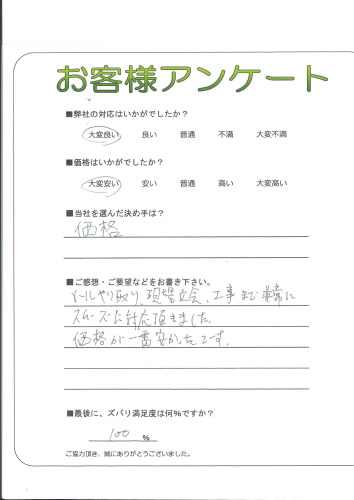 お客様アンケート
■弊社の対応はいかがでしたか？
大変良い 良い 普通 不満 大変不満
■価格はいかがでしたか？
大変安い 安い 普通 高い 大変高い
■当社を選んだ決め手は？
価格
■ご感想・ご要望などをお書き下さい。
メールやり取り、現場立会、工事まで非常に
スムーズに対応頂きました。
価格が一番安かったです。
■最後に、ズバリ満足度は何％ですか？
100 ％
ご協力頂き、誠にありがとうございました。